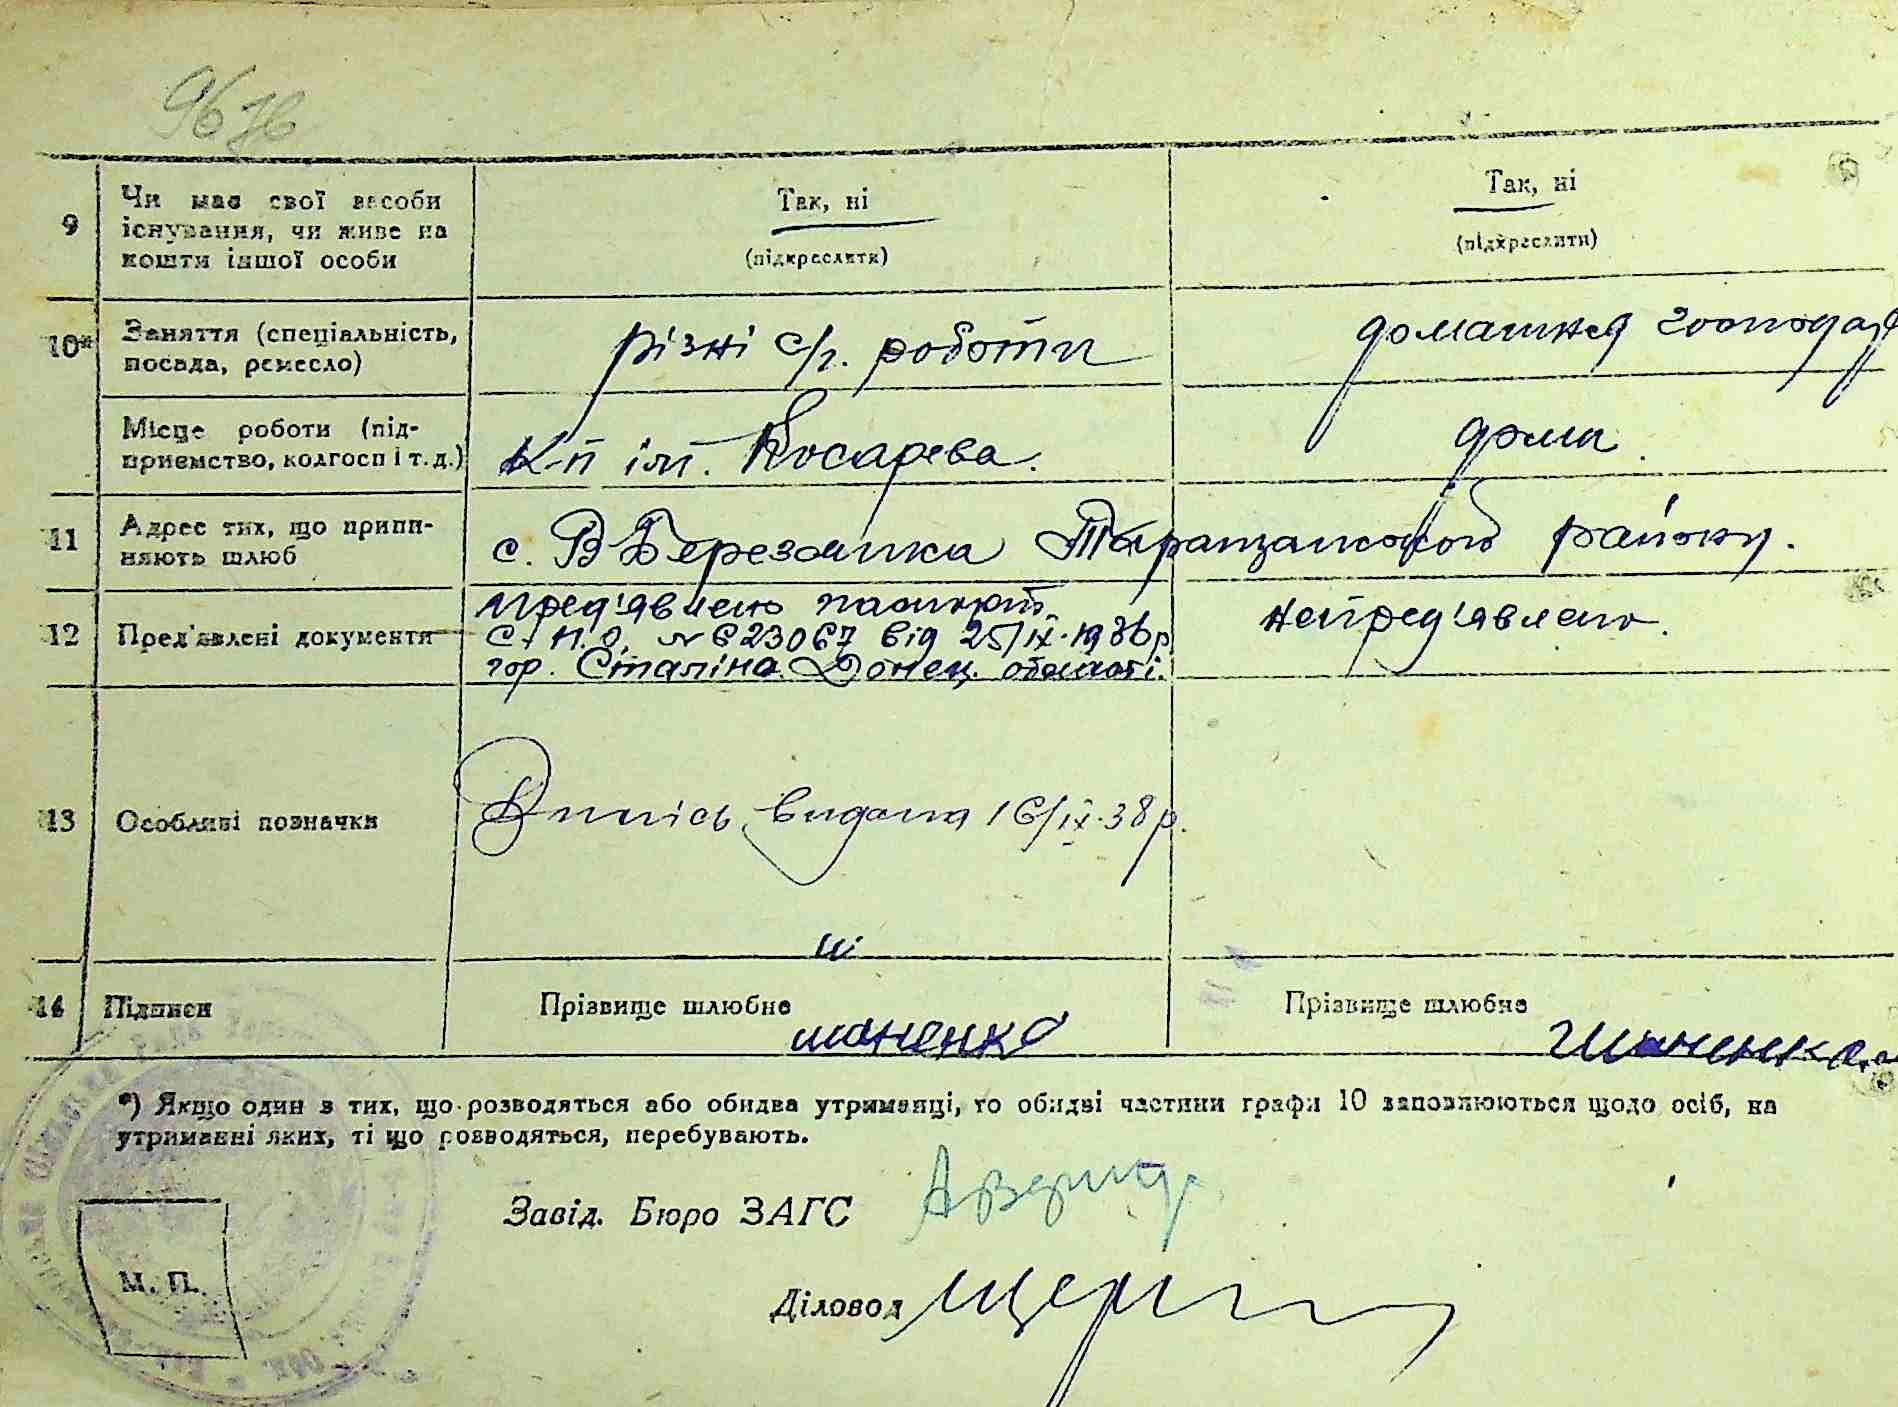 9
Чи має свої засоби
існування, чи живе на
кошти іншої особи
Так, ні
(підкреслити)
Так, ні
(підкреслити)
10*
Заняття (спеціальність,
посада, ремесло)
різні с/г. роботи
домашня господар
Місце роботи (під-
приємство, колгосп і т. д.)
К-п ім. Косарева.
дома.
11
Адрес тих, що припи-
няють шлюб
с. В Березанка Таращанського району.
12
Пред'явлені документи
пред'явлено паспорт
С. П. О. № 623067 від 25/ІХ-1936 р
гор. Сталіна Донец. області.
непред'явлено.
13
Особливі позначки
Випись видана 16/ІХ-38 р.
14
Підписи
Прізвище шлюбне
Прізвище шлюбне
*) Якщо один з тих, що розводяться або обидва утриманці, то обидві частини графи 10 заповнюються щодо осіб, на
утриманні яких, ті що розводяться, перебувають.
Завід. Бюро ЗАГС
Діловод
М. П.